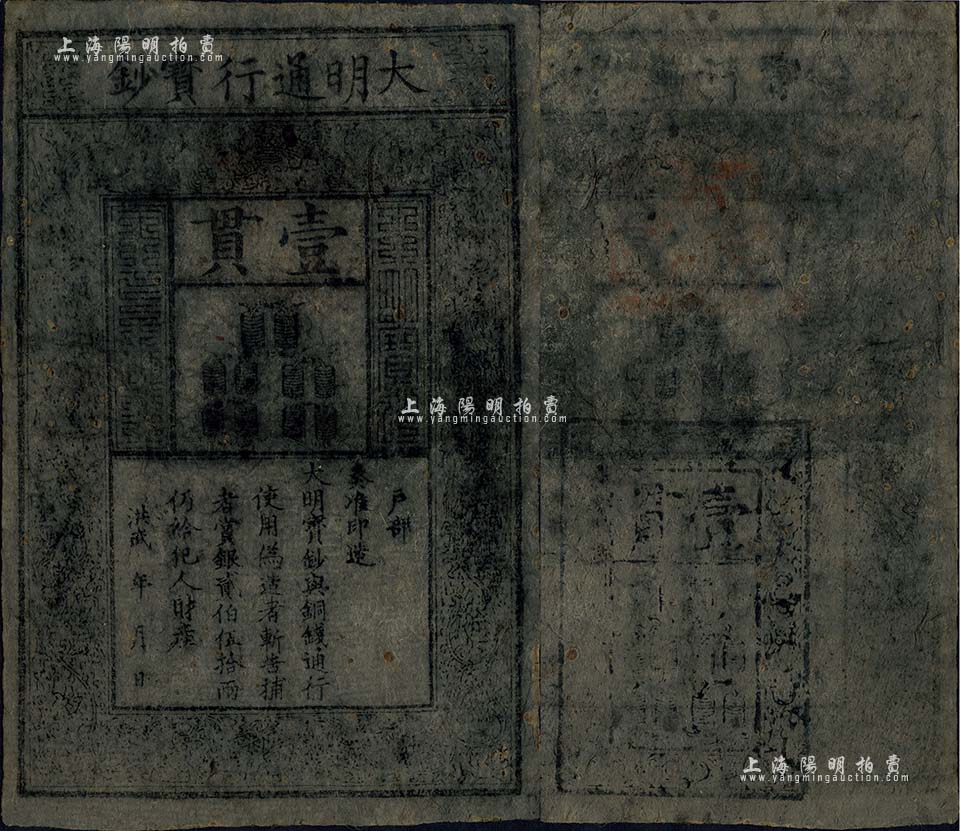 大明通行寶鈔
壹貫
戶部
奏准印造
大明寶鈔與銅錢通行
使用偽造者斬告捕
者賞銀貳伯伍拾兩
仍給犯人財產
洪武 年 月 日
壹
上海陽明拍賣
www.yangmingauction.com
上海陽明拍賣
www.yangmingauction.com
上海陽明拍賣
www.yangmingauction.com